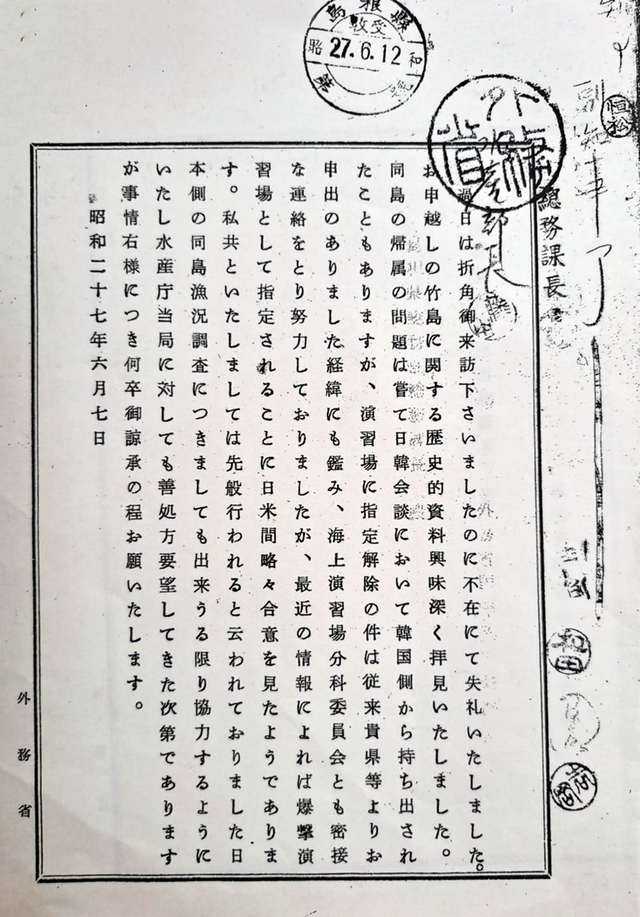 島根縣
受收
昭和
27.6.12
第 號
總務課長
部長
過日は折角御来訪下さいましたのに不在にて失礼いたしました。
お申越しの竹島に関する歴史的資料興味深く拝見いたしました。
同島の帰属の問題は嘗て日韓会談において韓国側から持ち出され
たこともありますが、演習場に指定解除の件は従来貴県等よりお
申出のありました経緯にも鑑み、海上演習場分科委員会とも密接
な連絡をとり努力しておりましたが、最近の情報によれば爆撃演
習場として指定されることに日米間略々合意を見たようでありま
す。私共といたしましては先般行われると云われておりました日
本側の同島漁況調査につきましても出来うる限り協力するように
いたし水産庁当局に対しても善処方要望してきた次第であります
が事情右様につき何卒御諒承の程お願いたします。
昭和二十七年六月七日
外務省